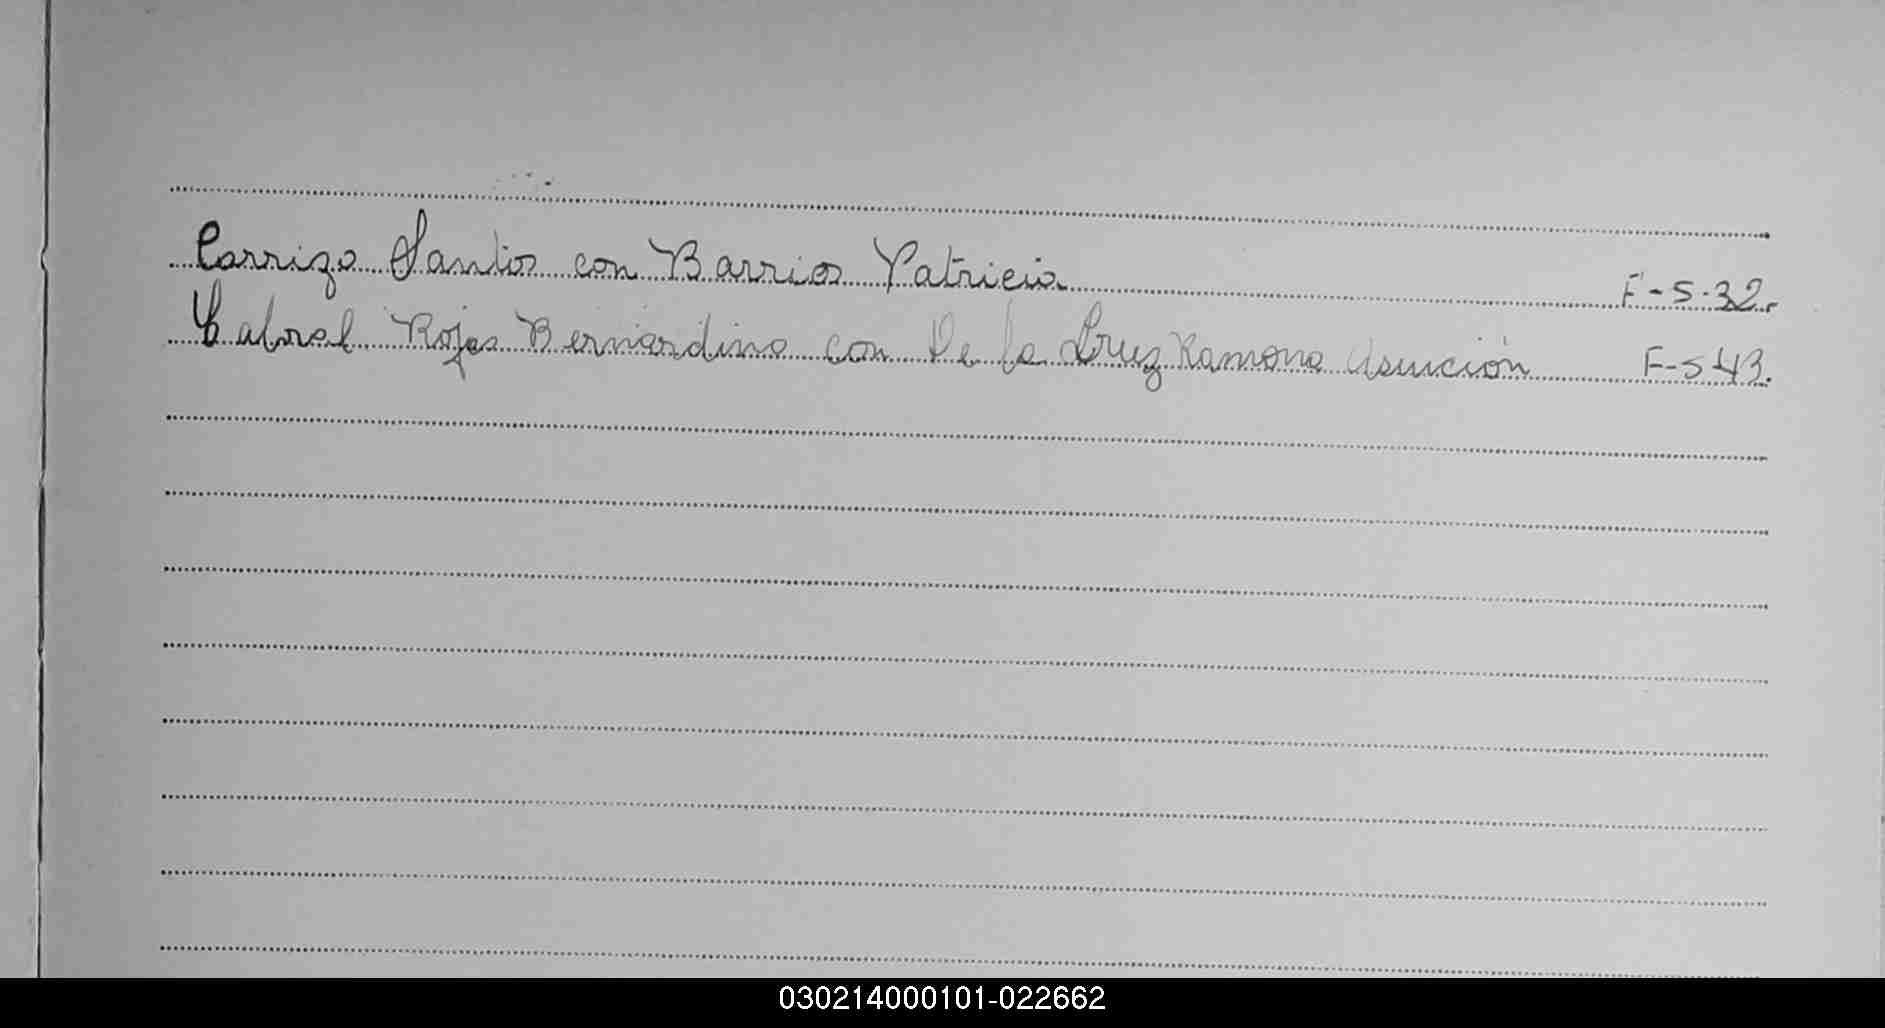 Carrizo Santos con Barrios Patricia F-5-32.
Cabrel Rojas Bernardino con De la Cruz Ramona Asunción F-5 43.
030214000101-022662